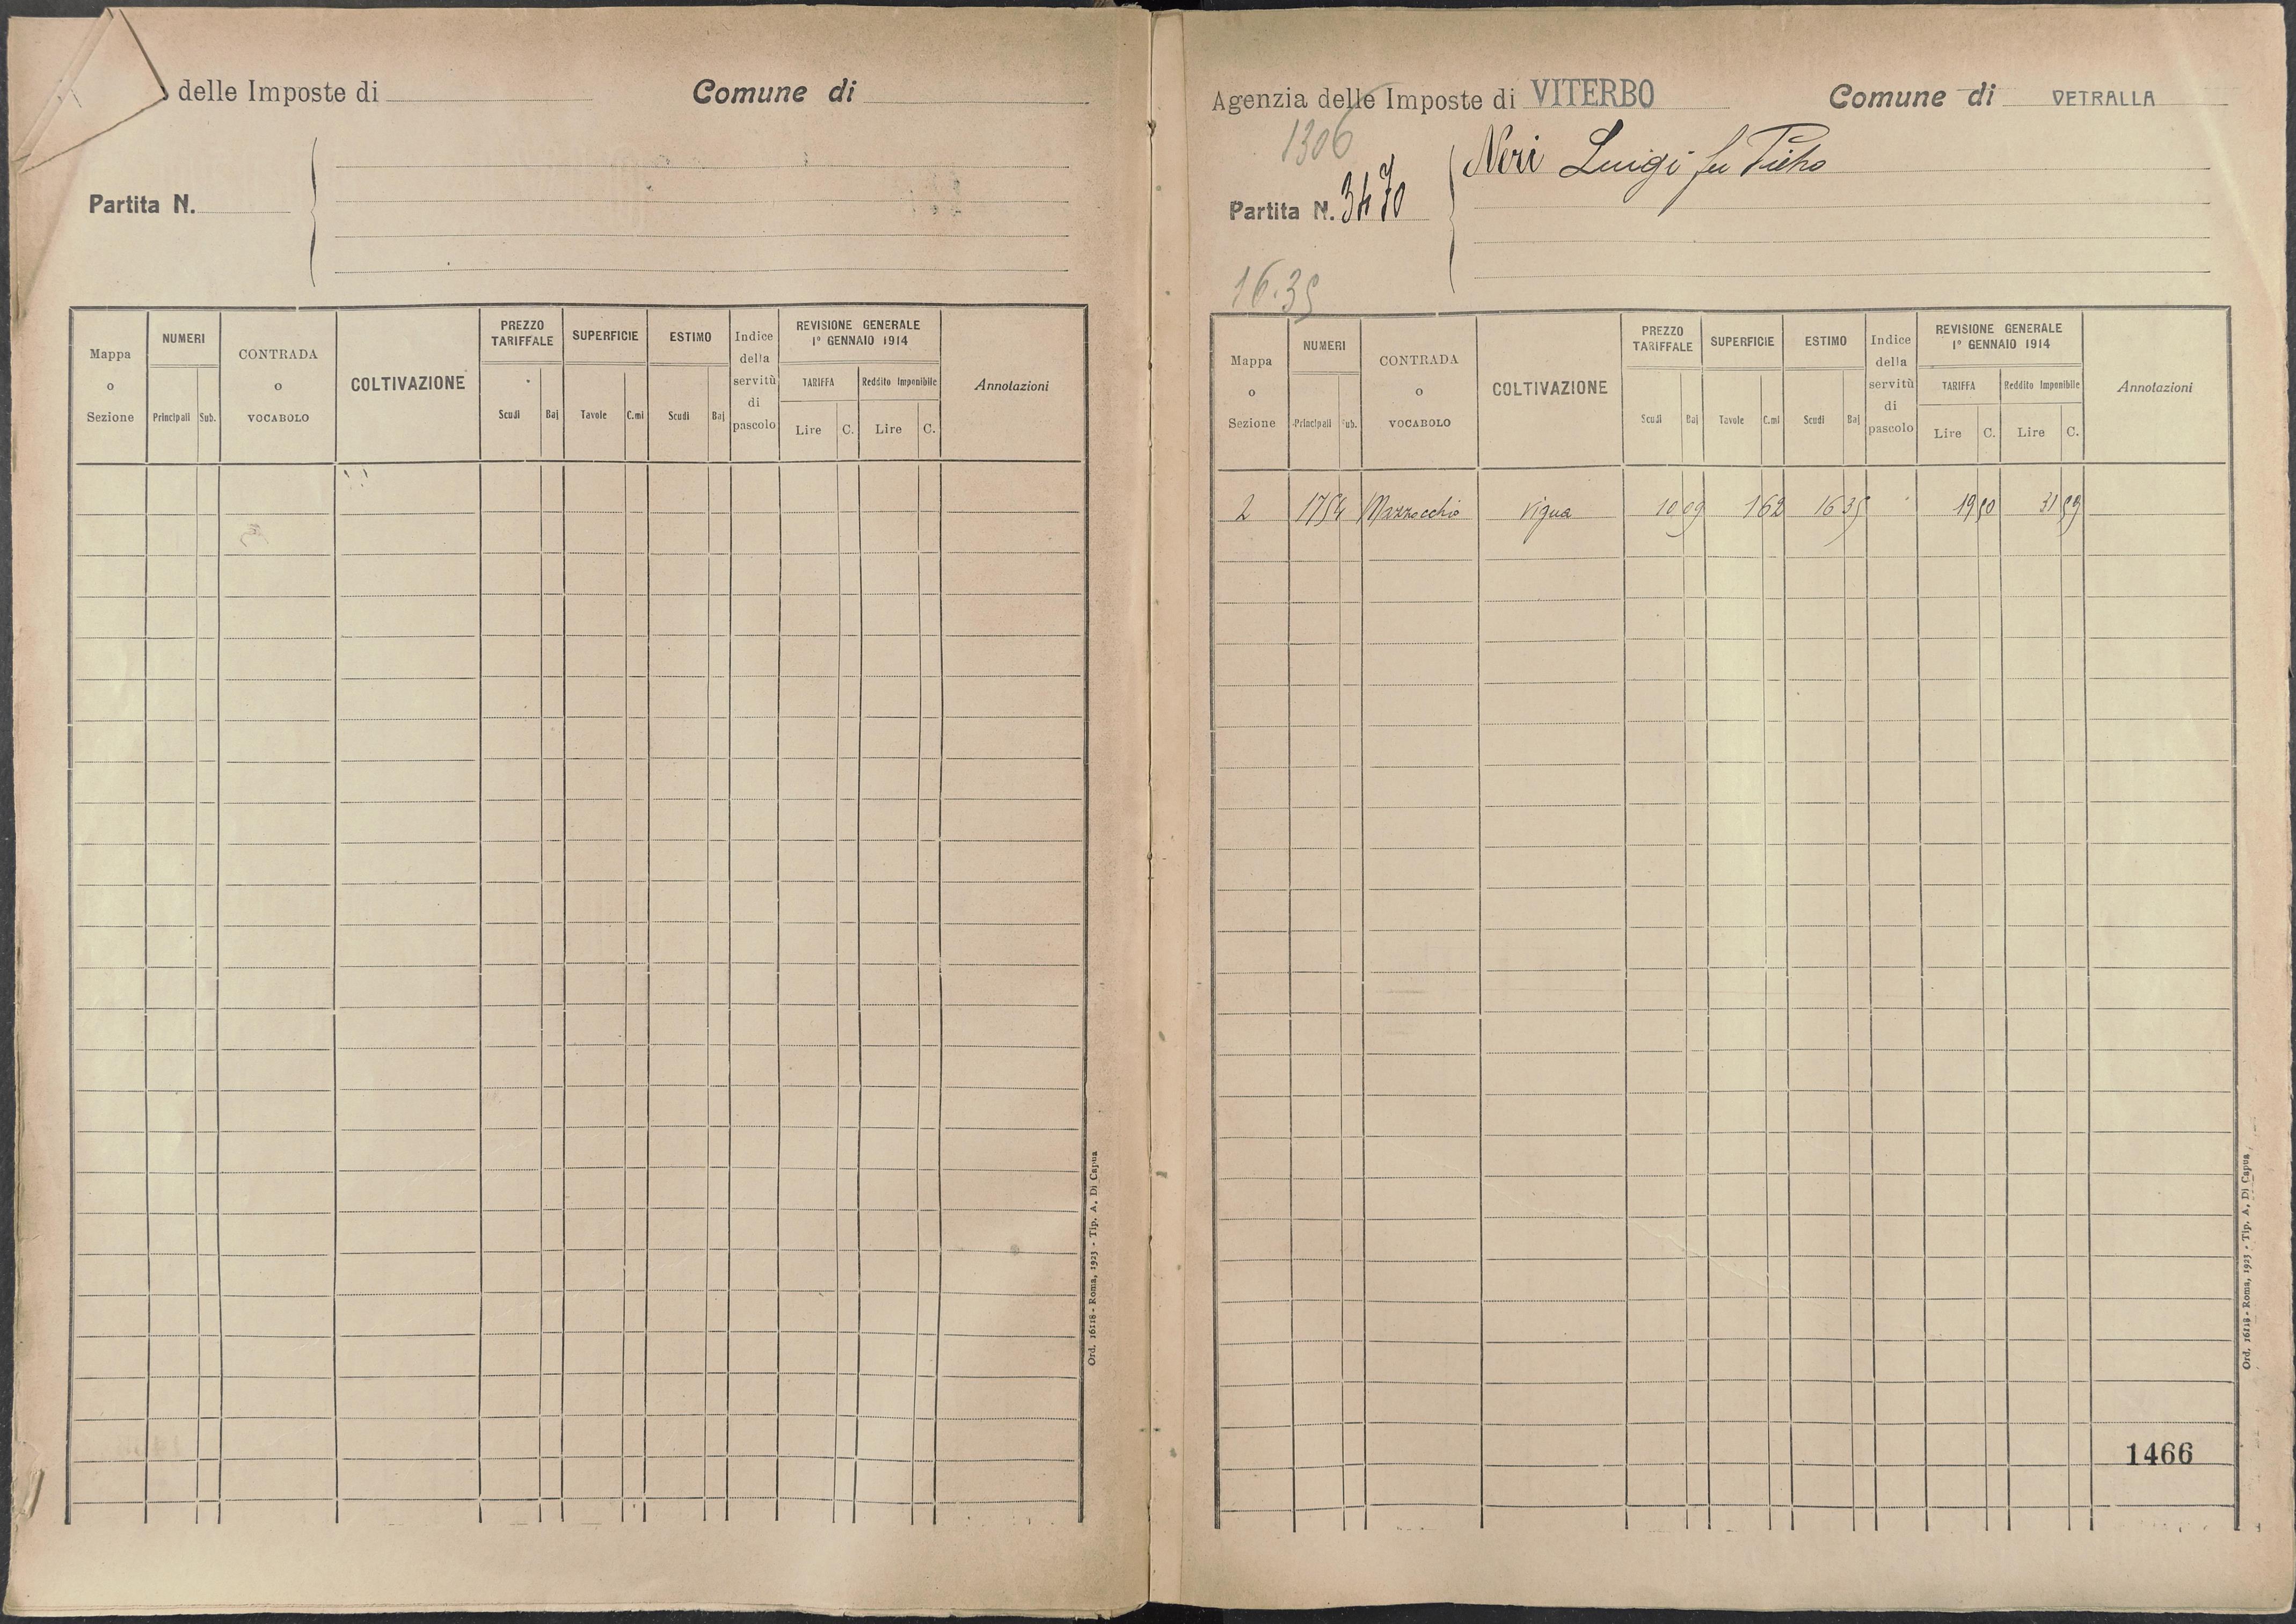 delle Imposte di Comune di
Partita N.
Mappa o Sezione
NUMERI
Principali Sub.
CONTRADA o VOCABOLO
COLTIVAZIONE
PREZZO TARIFFALE
Scudi Baj
SUPERFICIE
Tavole C.mi
ESTIMO
Scudi Baj
Indice della servitù di pascolo
REVISIONE GENERALE
1º GENNAIO 1914
TARIFFA Reddito Imponibile
Lire C. Lire C.
Annotazioni
Ord. 16118 - Roma, 1923 - Tip. A. Di Capua
Agenzia delle Imposte di VITERBO Comune di VETRALLA
1306
Neri Luigi fu Pietro
Partita N. 3470
16.35
Mappa o Sezione
NUMERI
Principali Sub.
CONTRADA o VOCABOLO
COLTIVAZIONE
PREZZO TARIFFALE
Scudi Baj
SUPERFICIE
Tavole C.mi
ESTIMO
Scudi Baj
Indice della servitù di pascolo
REVISIONE GENERALE
1º GENNAIO 1914
TARIFFA Reddito Imponibile
Lire C. Lire C.
Annotazioni
2 1754 Mazzocchio Vigna 10 09 1 62 16 35 19 50 31 59
1466
Ord. 16118 - Roma, 1923 - Tip. A. Di Capua